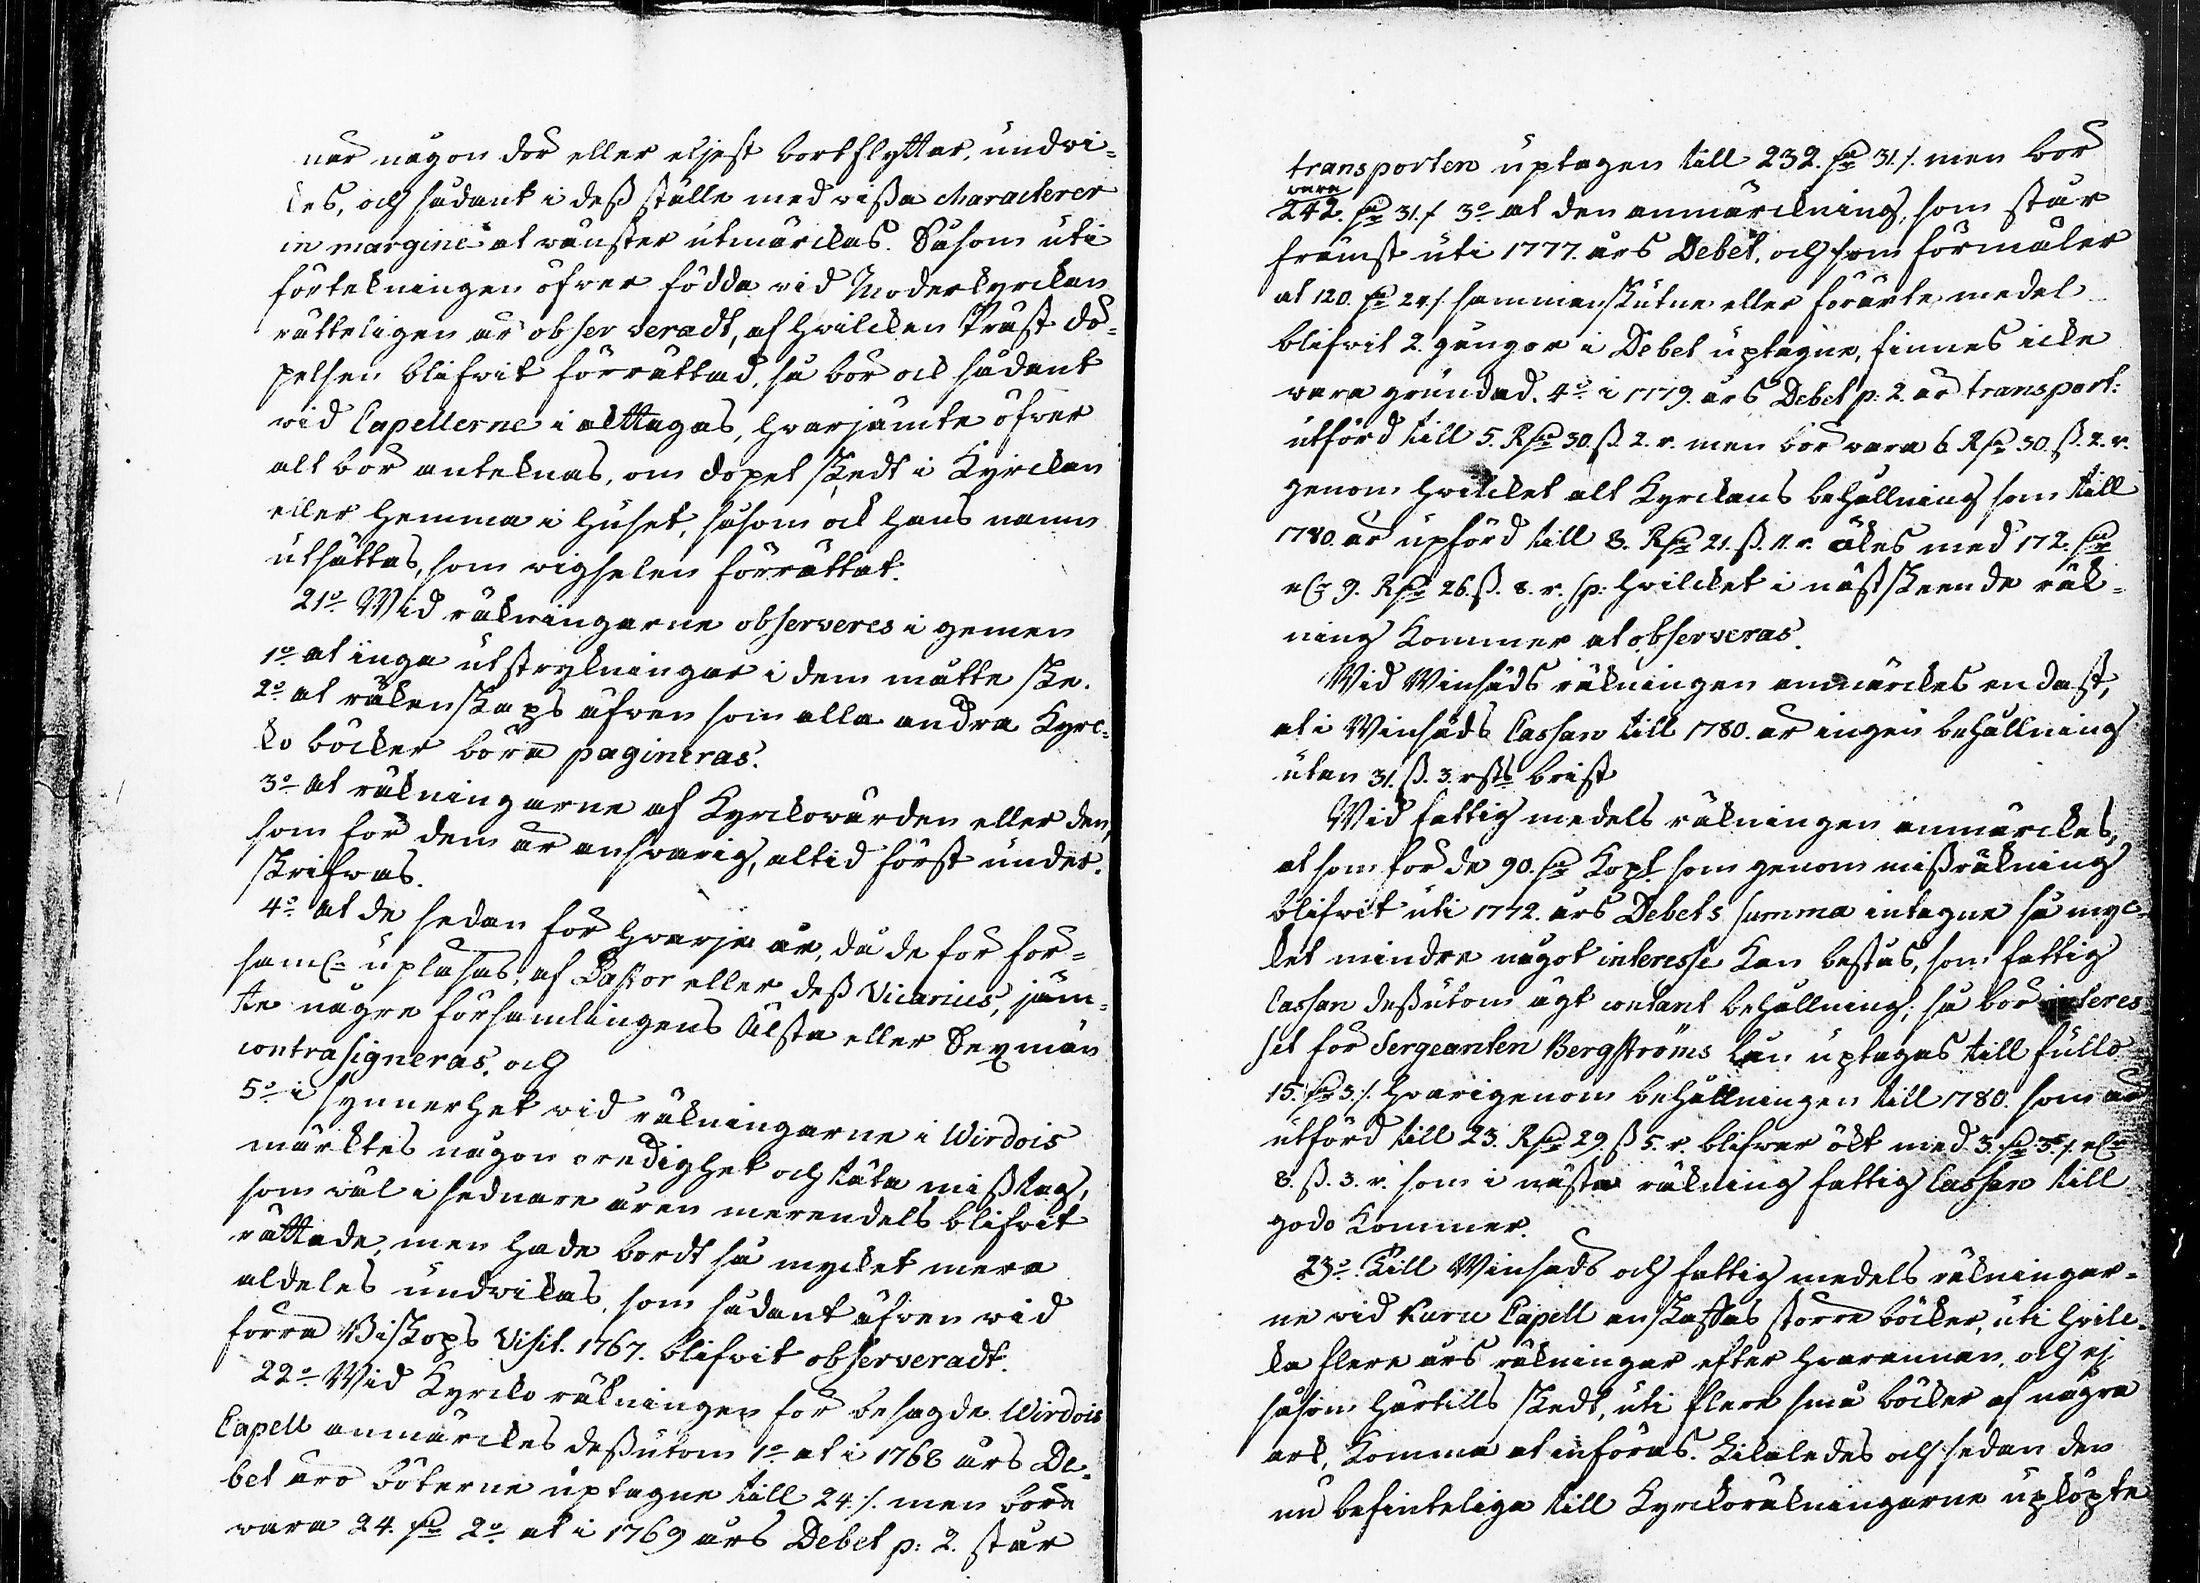 när någon dör eller eljest bortflyttar, undvi-
kes, och sådant i deß ställe med vißa characterer
in margine at vänster utmärckas. Såsom uti
förtekningen öfver födda vid Moderkyrckan
rätteligen är observeradt, af hvilcken Präst dö-
pelsen blifvit förrättad, så bör ock sådant
vid Capellerne i akttagas, hvarjämte öfver
alt bör anteknas, om dopet skedt i Kyrckan
eller hemma i huset, såsom ock hans namn
utsättas, som vigselen förrättat.
21o Wid räkningarne observeres i gemen
1o at inga utstrykningar i dem måtte ske.
2o at räkenskaps äfven som alla andra Kyrc-
ko böcker böra pagineras.
3o at räkningarne af Kyrckovärden eller den,
som för dem är ansvarig, altid först under-
skrifvas.
4o at de sedan för hvarje år, då de för för-
saml: upläsas, af Pastor eller deß Vicarius, jäm-
te några församlingens Älsta eller Sexmän
contrasigneras, och
5o i synnerhet vid räkningarne i Wirdois
märktes någon oredighet och täta mißtag,
som väl i sednare åren merendels blifvit
rättade, men hade bordt så mycket mera
aldeles undvikas, som sådant äfven vid
förra Biskops Visit. 1767. blifvit observeradt.
22o Wid Kyrcko räkningen för besagde Wirdois
Capell anmärckes deßutom 1o at i 1768 års De-
bet äro böterne uptagne till 24 /. men böra
vara 24. 2o at i 1769 års Debet p: 2. står
transporten uptagen till 232. 31 /. men bör
vara
242. 31 / 3o at den anmärckning, som står
främst uti 1777. års Debet, och som förmäler
at 120. 24 /. sammanskutne eller förärte medel
blifvit 2. gångor i Debet uptagne, finnes icke
vara grundad. 4o i 1779. års Debet p: 2. är transport:
utförd till 5. R 30. ß. 2. r. men bör vara 6 R 30. ß. 2. r.
genom hvilcket alt Kyrckans behållning som till
1780. är upförd till 8. R 21. ß. 11. r. ökes med 172.
9. R 26. ß. 8. r. sp: hvilcket i näst skeende räk-
ning kommer at observeras.
Wid Winsäds räkningen anmärckes endast,
at i Winsäds Cassan till 1780. är ingen behållning
utan 31. ß. 3. brist
Wid fattig medels räkningen anmärckes,
at som för de 90. Kopt som genom mißräkning
blifvit uti 1772. års Debets summa intagne så myc-
ket mindre något interesse kan bestås, som fattig
Cassan deßutom ägt contant behållning; så bör interes-
set för Sergeanten Bergströms lån uptagas till fullo
15. 3 /. hvarigenom behållningen till 1780. som är
utförd till 23. R 29. ß 5. r. blifver ökt med 3.
8. ß. 3. r. som i nästa räkning fattig Cassan till
godo kommer.
23o Till Winsäds och fattig medels räkningar-
ne vid Kuru Capell anskaffas större böcker, uti hvilc-
ka flere års räkningar efter hvarannan, och ej
såsom härtills skedt, uti flere små böcker af några
ark, komma at införas. Likaledes och sedan den
nu befintelige till Kyrckoräkningarne upköpte